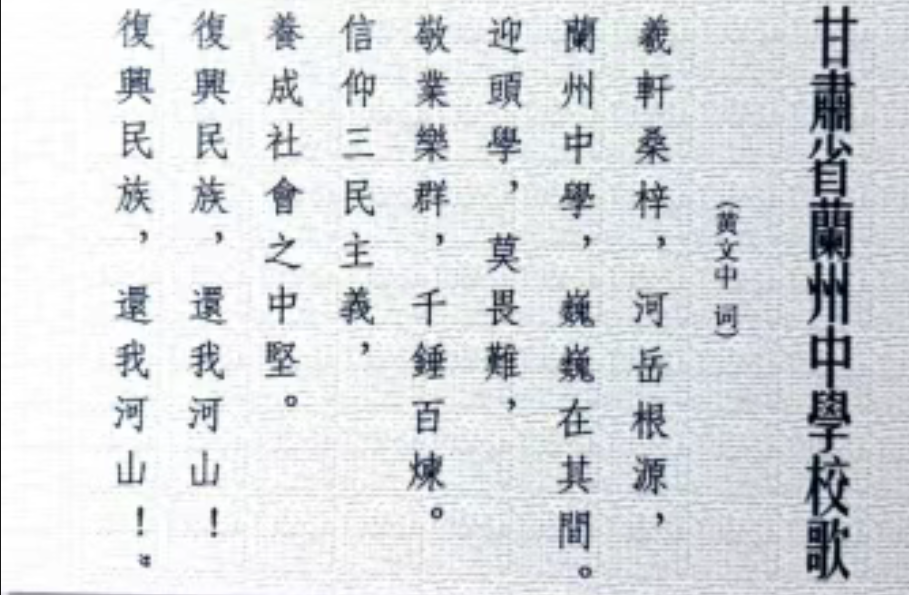 甘肅省蘭州中學校歌
（黄文中 词）
羲軒桑梓，河岳根源，
蘭州中學，巍巍在其間。
迎頭學，莫畏難，
敬業樂群，千錘百煉。
信仰三民主義，
養成社會之中堅。
復興民族，還我河山！
復興民族，還我河山！